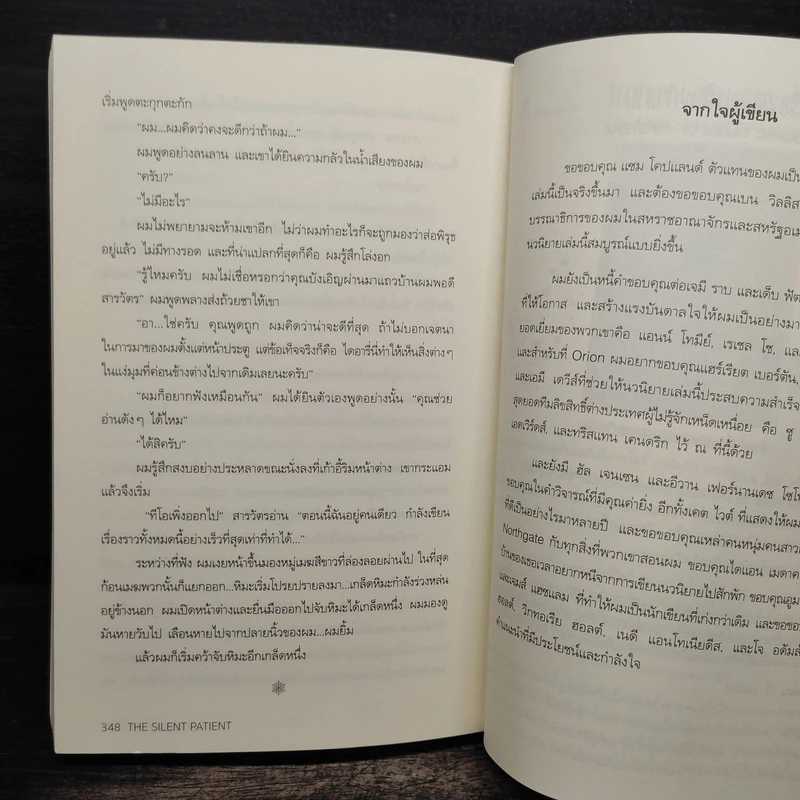 เริ่มพูดตะกุกตะกัก
“ผม...ผมคิดว่าคงจะดีกว่าถ้าผม...”
ผมพูดอย่างลนลาน และเขาได้ยินความกลัวในน้ำเสียงของผม
“ครับ?”
“ไม่มีอะไร”
ผมไม่พยายามจะห้ามเขาอีก ไม่ว่าผมทำอะไรก็จะถูกมองว่าส่อพิรุธ
อยู่แล้ว ไม่มีทางรอด และที่น่าแปลกที่สุดก็คือ ผมรู้สึกโล่งอก
“รู้ไหมครับ ผมไม่เชื่อหรอกว่าคุณบังเอิญผ่านมาแถวบ้านผมพอดี
สารวัตร” ผมพูดพลางส่งถ้วยชาให้เขา
“อา...ใช่ครับ คุณพูดถูก ผมคิดว่าน่าจะดีที่สุด ถ้าไม่บอกเจตนา
ในการมาของผมตั้งแต่หน้าประตู แต่ข้อเท็จจริงก็คือ ไดอารี่นี่ทำให้เห็นสิ่งต่างๆ
ในแง่มุมที่ค่อนข้างต่างไปจากเดิมเลยนะครับ”
“ผมก็อยากฟังเหมือนกัน” ผมได้ยินตัวเองพูดอย่างนั้น “คุณช่วย
อ่านดังๆ ได้ไหม”
“ได้สิครับ”
ผมรู้สึกสงบอย่างประหลาดขณะนั่งลงที่เก้าอี้ริมหน้าต่าง เขากระแอม
แล้วจึงเริ่ม
“ทีโอเพิ่งออกไป” สารวัตรอ่าน “ตอนนี้ฉันอยู่คนเดียว กำลังเขียน
เรื่องราวทั้งหมดนี้อย่างเร็วที่สุดเท่าที่ทำได้...”
ระหว่างที่ฟัง ผมเงยหน้าขึ้นมองหมู่เมฆสีขาวที่ล่องลอยผ่านไป ในที่สุด
ก้อนเมฆพวกนั้นก็แยกออก...หิมะเริ่มโปรยปรายลงมา...เกล็ดหิมะกำลังร่วงหล่น
อยู่ข้างนอก ผมเปิดหน้าต่างและยื่นมือออกไปจับหิมะได้เกล็ดหนึ่ง ผมมองดู
มันหายวับไป เลือนหายไปจากปลายนิ้วของผม...ผมยิ้ม
แล้วผมก็เริ่มคว้าจับหิมะอีกเกล็ดหนึ่ง
348 THE SILENT PATIENT
จากใจผู้เขียน
ขอขอบคุณ แซม โคปแลนด์ ตัวแทนของผมเป็น
เล่มนี้เป็นจริงขึ้นมา และต้องขอขอบคุณเบน วิลลิส
บรรณาธิการของผมในสหราชอาณาจักรและสหรัฐอเม
นวนิยายเล่มนี้สมบูรณ์แบบยิ่งขึ้น
ผมยังเป็นหนี้คำขอบคุณต่อเจมี ราบ และเด็บ ฟัต
ที่ให้โอกาส และสร้างแรงบันดาลใจให้ผมเป็นอย่างมา
ยอดเยี่ยมของพวกเขาคือ แอนน์ โทมีย์, เรเชล โช, แล
และสำหรับที่ Orion ผมอยากขอบคุณแฮร์เรียต เบอร์ตัน,
และเอมี เดวีส์ที่ช่วยให้นวนิยายเล่มนี้ประสบความสำเร็จ
สุดยอดทีมลิขสิทธิ์ต่างประเทศผู้ไม่รู้จักเหน็ดเหนื่อย คือ ซู
เอดเวิร์ตส์, และทริสแทน เคนดริก ไว้ ณ ที่นี้ด้วย
และยังมี ฮัล เจนเซน และอีวาน เฟอร์นานเดซ โซโ
ขอบคุณในคำวิจารณ์ที่มีคุณค่ายิ่ง อีกทั้งเคต ไวต์ ที่แสดงให้ผม
ที่ดีเป็นอย่างไรมาหลายปี และขอขอบคุณเหล่าคนหนุ่มคนสาวแ
Northgate กับทุกสิ่งที่พวกเขาสอนผม ขอบคุณไดแอน เมดาค
บ้านของเธอเวลาอยากหนีจากการเขียนนวนิยายไปสักพัก ขอบคุณอูม
และเจมส์ แฮซแลม ที่ทำให้ผมเป็นนักเขียนที่เก่งกว่าเดิม และขอขอ
ฮอลต์, วิกทอเรีย ฮอลต์, เนดี แอนโทเนียดีส, และโจ อดัมส์
คำแนะนำที่มีประโยชน์และกำลังใจ